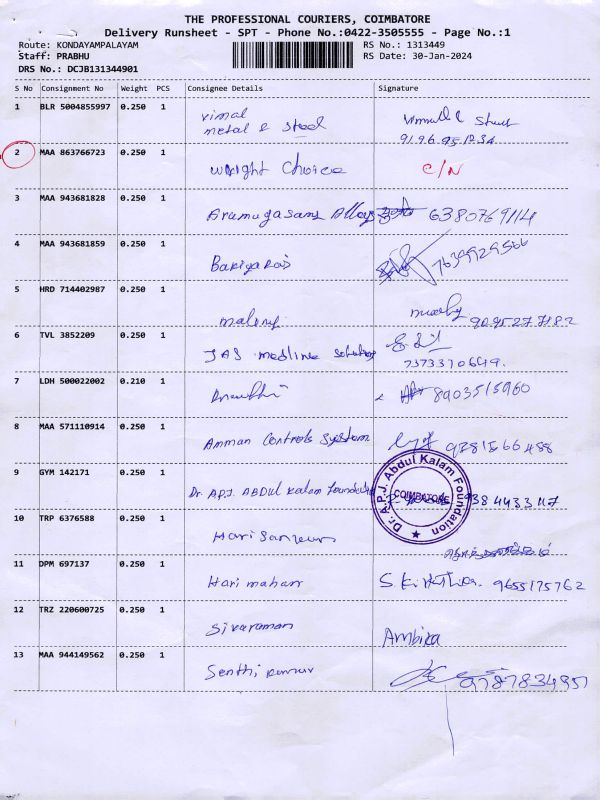 THE PROFESSIONAL COURIERS, COIMBATORE
Delivery Runsheet - SPT - Phone No.:0422-3505555 - Page No.:1
Route: KONDAYAMPALAYAM RS No.: 1313449
Staff: PRABHU RS Date: 30-Jan-2024
DRS No.: DCJB131344901
S No Consignment No Weight PCS Consignee Details Signature
1 BLR 5004855997 0.250 1 vimal
metal & steel 91.96.95.1234
2 MAA 863766723 0.250 1 Wright Choice C/N
3 MAA 943681828 0.250 1 Arumugasamy Alloys 6380769114
4 MAA 943681859 0.250 1 7639929566
5 HRD 714402987 0.250 1 9095277182
6 TVL 3852209 0.250 1 JAS medline
7373370649.
7 LDH 500022002 0.210 1 8903515960
8 MAA 571110914 0.250 1 Amman Controls System
9 GYM 142171 0.250 1 Dr. APJ. ABDUL Kalam Foundation
Dr. A.P.J. Abdul Kalam Foundation
COIMBATORE
10 TRP 6376588 0.250 1
11 DPM 697137 0.250 1 Harimohan 9655175762
12 TRZ 220600725 0.250 1 Sivaraman Ambika
13 MAA 944149562 0.250 1 Senthilkumar 9787834951